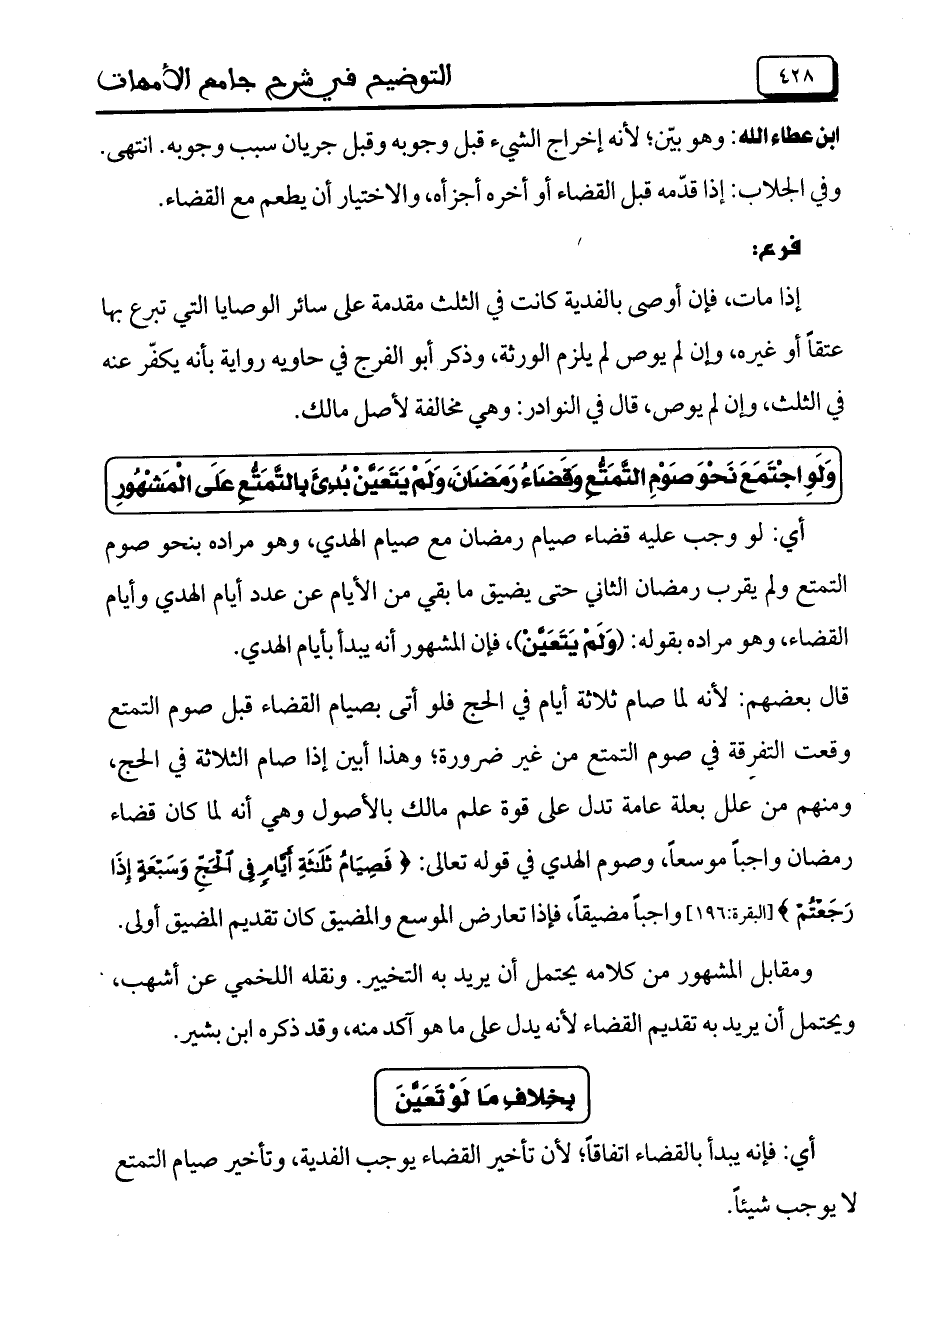 ٤٢٨
التوضيح في شرح جامع الأمهات
ابن عطاء الله: وهو بيّن؛ لأنه إخراج الشيء قبل وجوبه وقبل جريان سبب وجوبه. انتهى.
وفي الجلاب: إذا قدّمه قبل القضاء أو أخره أجزأه، والاختيار أن يطعم مع القضاء.
فرع:
إذا مات، فإن أوصى بالفدية كانت في الثلث مقدمة على سائر الوصايا التي تبرع بها
عتقاً أو غيره، وإن لم يوص لم يلزم الورثة، وذكر أبو الفرج في حاويه رواية بأنه يكفّر عنه
في الثلث، وإن لم يوص، قال في النوادر: وهي مخالفة لأصل مالك.
وَلَوِ اجْتَمَعَ نَحْوَ صَوْمِ التَّمَتُّعِ وَقَضَاءُ رَمَضَانَ، وَلَمْ يَتَعَيَّنْ بُدِئَ بِالتَّمَتُّعِ عَلَى الْمَشْهُورِ
أي: لو وجب عليه قضاء صيام رمضان مع صيام الهدي، وهو مراده بنحو صوم
التمتع ولم يقرب رمضان الثاني حتى يضيق ما بقي من الأيام عن عدد أيام الهدي وأيام
القضاء، وهو مراده بقوله: (وَلَمْ يَتَعَيَّنْ)، فإن المشهور أنه يبدأ بأيام الهدي.
قال بعضهم: لأنه لما صام ثلاثة أيام في الحج فلو أتى بصيام القضاء قبل صوم التمتع
وقعت التفرقة في صوم التمتع من غير ضرورة؛ وهذا أبين إذا صام الثلاثة في الحج،
ومنهم من علل بعلة عامة تدل على قوة علم مالك بالأصول وهي أنه لما كان قضاء
رمضان واجباً موسعاً، وصوم الهدي في قوله تعالى: ﴿ فَصِيَامُ ثَلَـٰثَةِ أَيَّامٍ فِي ٱلْحَجِّ وَسَبْعَةٍ إِذَا
رَجَعْتُمْ ﴾ [البقرة:١٩٦] واجباً مضيقاً، فإذا تعارض الموسع والمضيق كان تقديم المضيق أولى.
ومقابل المشهور من كلامه يحتمل أن يريد به التخيير. ونقله اللخمي عن أشهب،
ويحتمل أن يريد به تقديم القضاء لأنه يدل على ما هو آكد منه، وقد ذكره ابن بشير.
بِخِلافِ مَا لَوْ تَعَيَّنَ
أي: فإنه يبدأ بالقضاء اتفاقاً؛ لأن تأخير القضاء يوجب الفدية، وتأخير صيام التمتع
لا يوجب شيئاً.